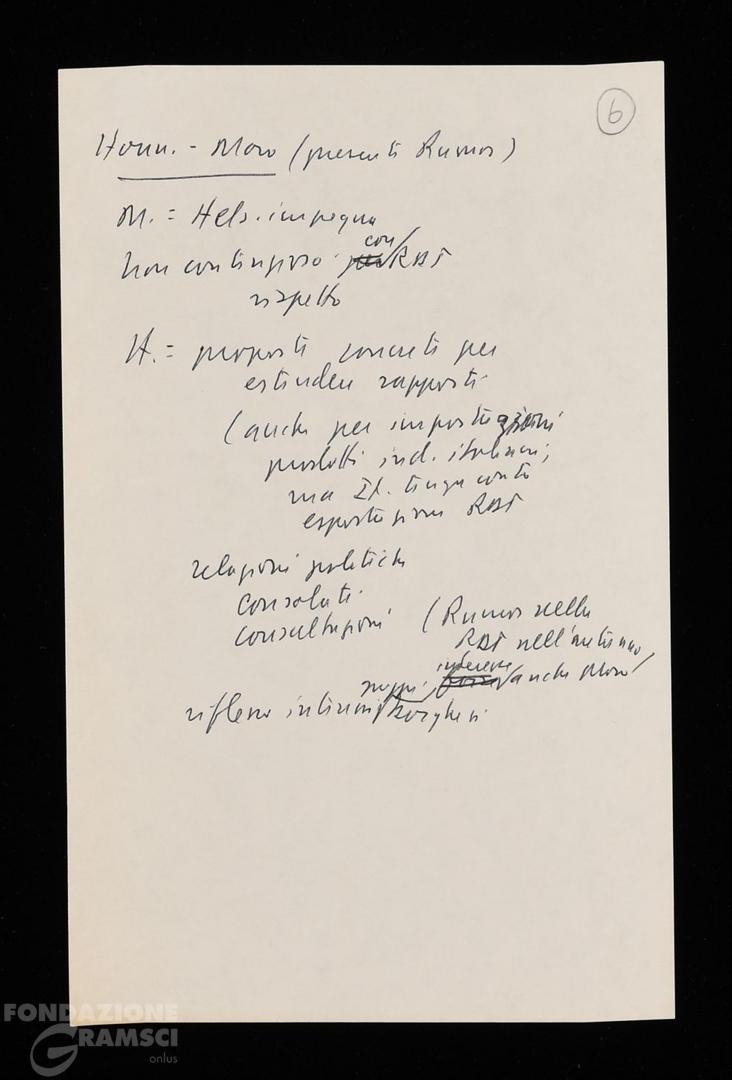 6
Honn. - Moro (presenti Rumor)
M. = Hels. impegna
non contingoso con RDT
rispetto
H. = proposte concrete per
estendere rapporti
(anche per importazioni
prodotti ind. italiani;
ma It. tenga conto
esportazioni RDT
relazioni politiche
consolati
consultazioni (Rumor nella
RDT nell'autunno
interesse anche Moro)
riflesso interni gruppi borghesi
FONDAZIONE
GRAMSCI
onlus